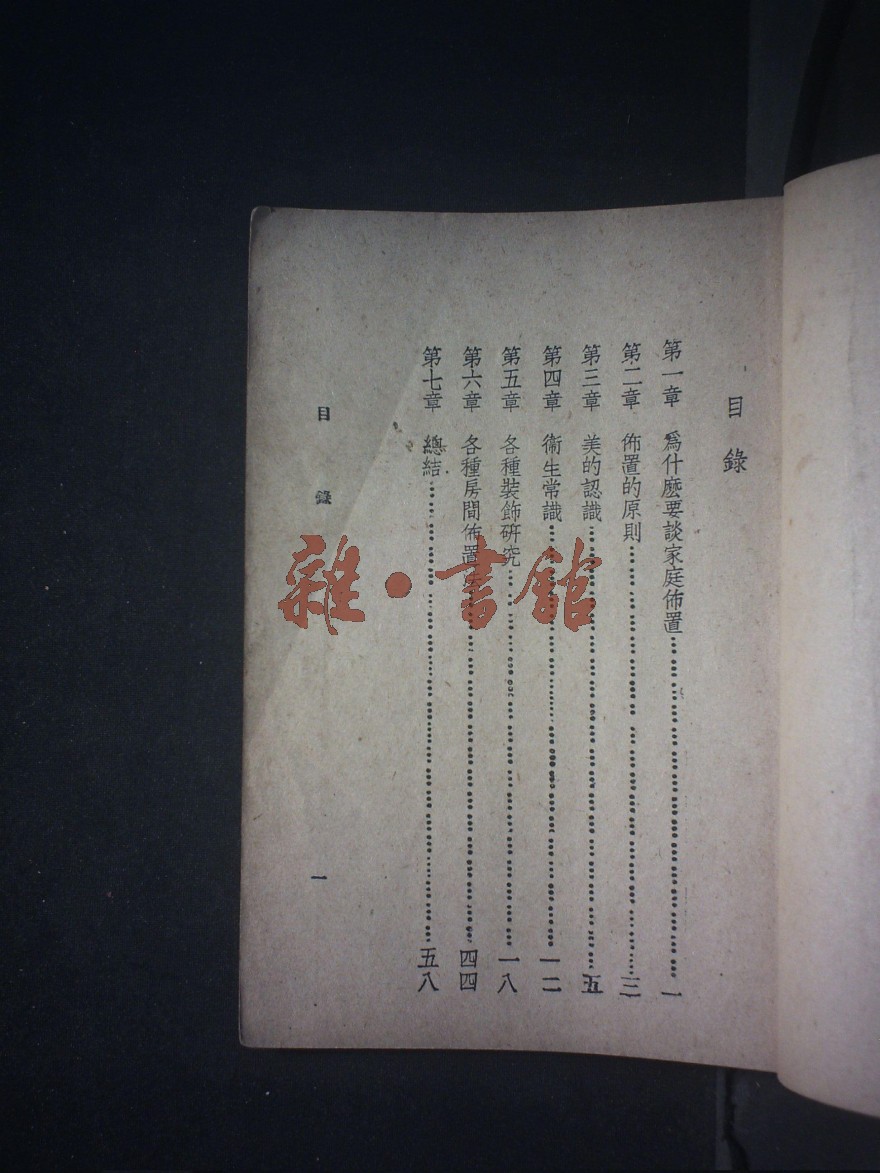 目錄
第一章　爲什麽要談家庭佈置………一
第二章　佈置的原則………三
第三章　美的認識………五
第四章　衞生常識………一二
第五章　各種裝飾研究………一八
第六章　各種房間佈置………四四
第七章　總結………五八
目錄　一
雜・書館